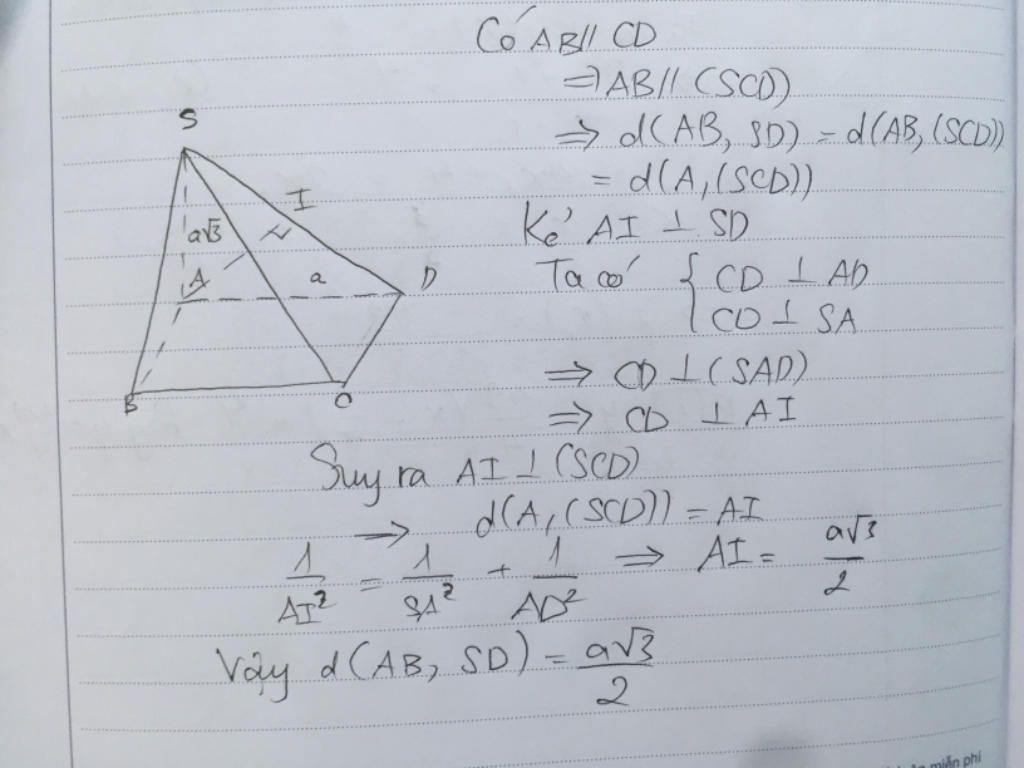 Có AB // CD
⇒ AB // (SCD)
⇒ d(AB, SD) = d(AB, (SCD))
= d(A, (SCD))
Kẻ AI ⊥ SD
Ta có { CD ⊥ AD
CD ⊥ SA
⇒ CD ⊥ (SAD)
⇒ CD ⊥ AI
Suy ra AI ⊥ (SCD)
→ d(A, (SCD)) = AI
1/AI² = 1/SA² + 1/AD² ⇒ AI = a√3/2
Vậy d(AB, SD) = a√3/2
S
I
a√3
A
a
D
B
C
miễn phí